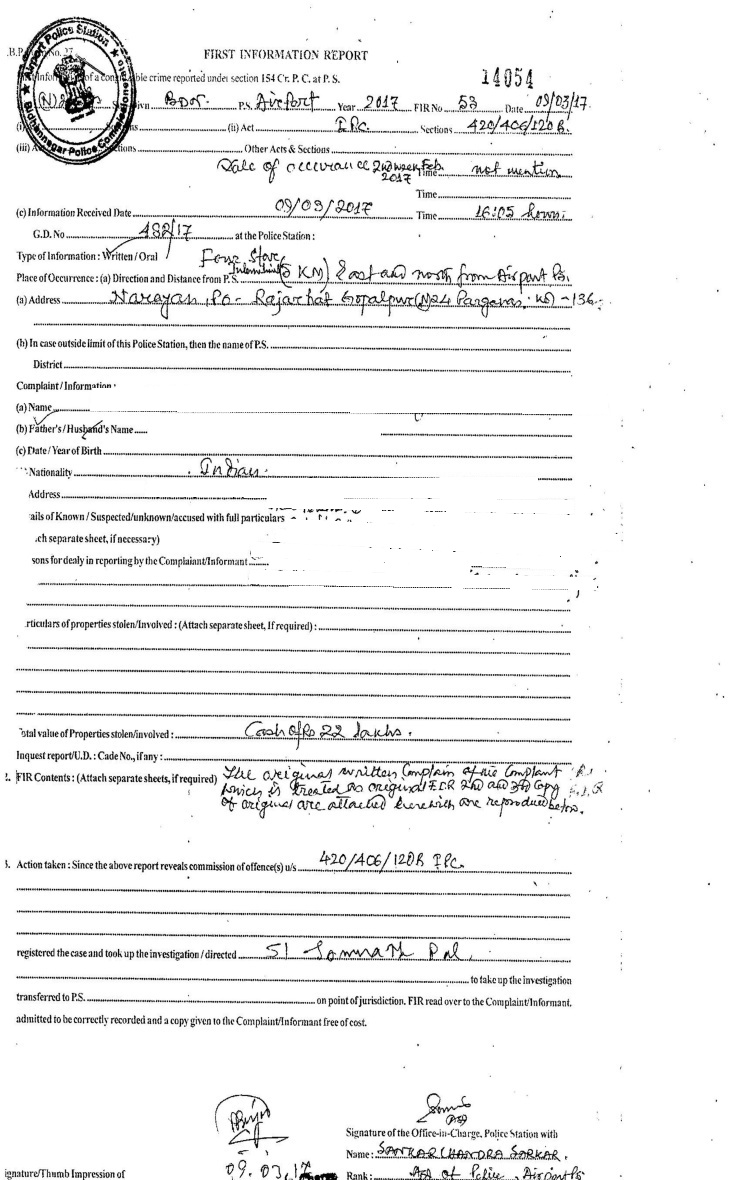 Airport Police Station
Bidhannagar Police Commissionerate
.B.P. No. 27
FIRST INFORMATION REPORT
14054
ble crime reported under section 154 Cr. P. C. at P. S.
(N) BDOR. P.S. Airport Year 2017 FIR No 53 Date 09/03/17.
(ii) Act I.P.C. Sections 420/406/120B.
(iii) Other Acts & Sections
Date of occurance 2nd week Feb. 2017 Time not mention
Time
(c) Information Received Date 09/03/2017 Time 16:05 hours.
G.D. No 482/17 at the Police Station :
Type of Information : Written / Oral
Place of Occurrence : (a) Direction and Distance from P.S. (5 KM) East and north from Airport PS.
(a) Address Narayan, PO- Rajarhat Gopalpur (N) 24 Parganas. -136
(b) In case outside limit of this Police Station, then the name of P.S.
District
Complaint / Information
(a) Name
(b) Father's / Husband's Name
(c) Date / Year of Birth
Nationality Indian.
Address
ails of Known / Suspected/unknown/accused with full particulars
.ch separate sheet, if necessary)
sons for dealy in reporting by the Complaint/Informant
rticulars of properties stolen/Involved : (Attach separate sheet, If required) :
otal value of Properties stolen/involved : Cash of Rs 22 lakhs.
Inquest report/U.D. : Cade No., if any :
2. FIR Contents : (Attach separate sheets, if required) The original written Complain of the Complant
which is treated as original F.I.R 2nd and 3rd Copy
of original are attached herewith are reproduce below.
3. Action taken : Since the above report reveals commission of offence(s) u/s 420/406/120B IPC.
registered the case and took up the investigation / directed SI Somnath Pal.
to take up the investigation
transferred to P.S. on point of jurisdiction. FIR read over to the Complaint/Informant.
admitted to be correctly recorded and a copy given to the Complaint/Informant free of cost.
Signature of the Office-in-Charge, Police Station with
Name : SANKAR CHANDRA SARKAR.
ignature/Thumb Impression of 09.03.17 Rank : of Police, Airport PS